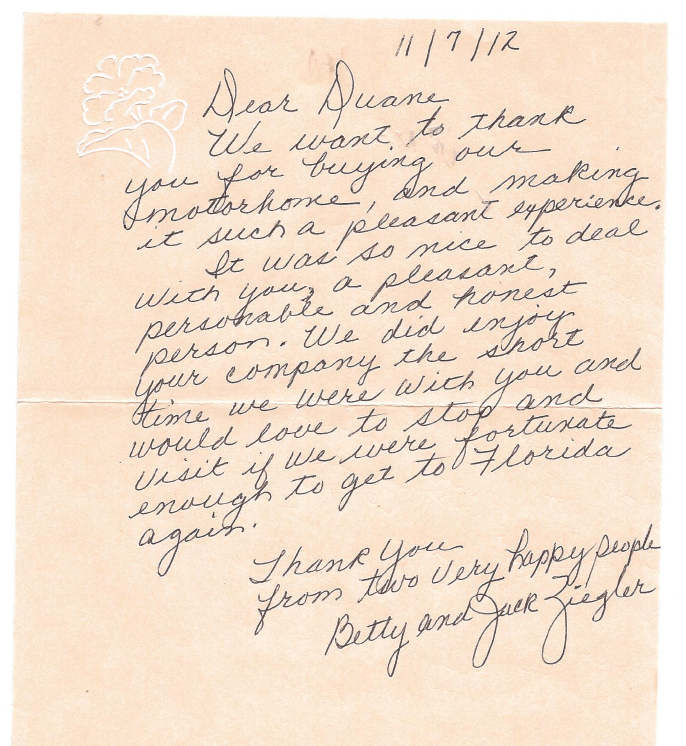 11/7/12
Dear Duane
We want to thank
you for buying our
motorhome, and making
it such a pleasant experience.
It was so nice to deal
with you, a pleasant,
personable and honest
person. We did enjoy
your company the short
time we were with you and
would love to stop and
visit if we were fortunate
enough to get to Florida
again.
Thank you
from two very happy people
Betty and Jack Ziegler